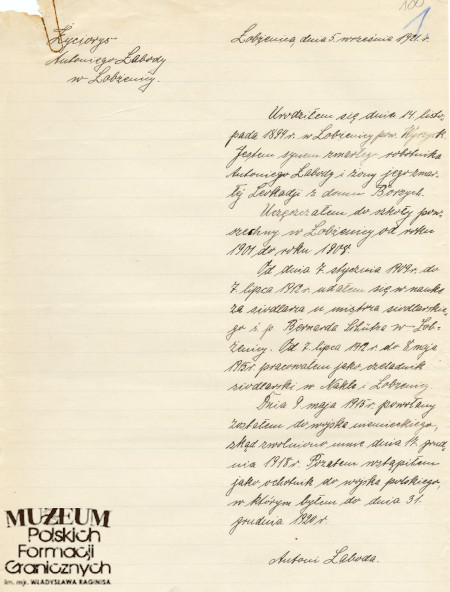 100
1
Życiorys
Antoniego Łabody
w Łobżenicy.
Łobżenica, dnia 5. września 1921. r.
Urodziłem się dnia 14. listo,
pada 1894 r. w Łobżenicy pow. Wyrzysk.
Jestem synem zmarłego robotnika
Antoniego Łabody i żony jego zmar,
łej Leokadji z domu
Uczęszczałem do szkoły pow,
szechny w Łobżenicy od roku
1901 do roku 1908.
Od dnia 7. stycznia 1909 r. do
7. lipca 1912 r. udałem się w nauka
za siodlarza u mistrza siodlarskie,
go ś. p. Bernarda w Łob,
żenicy. Od 7. lipca 1912 r. do 8 maja
1915 r. pracowałem jako czeladnik
siodlarski w Nakle i Łobżenicy.
Dnia 9 maja 1915 r. powołany
zostałem do wojska niemieckiego,
skąd zwolniono mnie dnia 17. grud,
nia 1918 r. Pozatem wstąpiłem
jako ochotnik do wojska polskiego,
w którym byłem do dnia 31.
grudnia 1920 r.
Antoni Łaboda.
MUZEUM
Polskich
Formacji
Granicznych
im. mjr. WŁADYSŁAWA RAGINISA